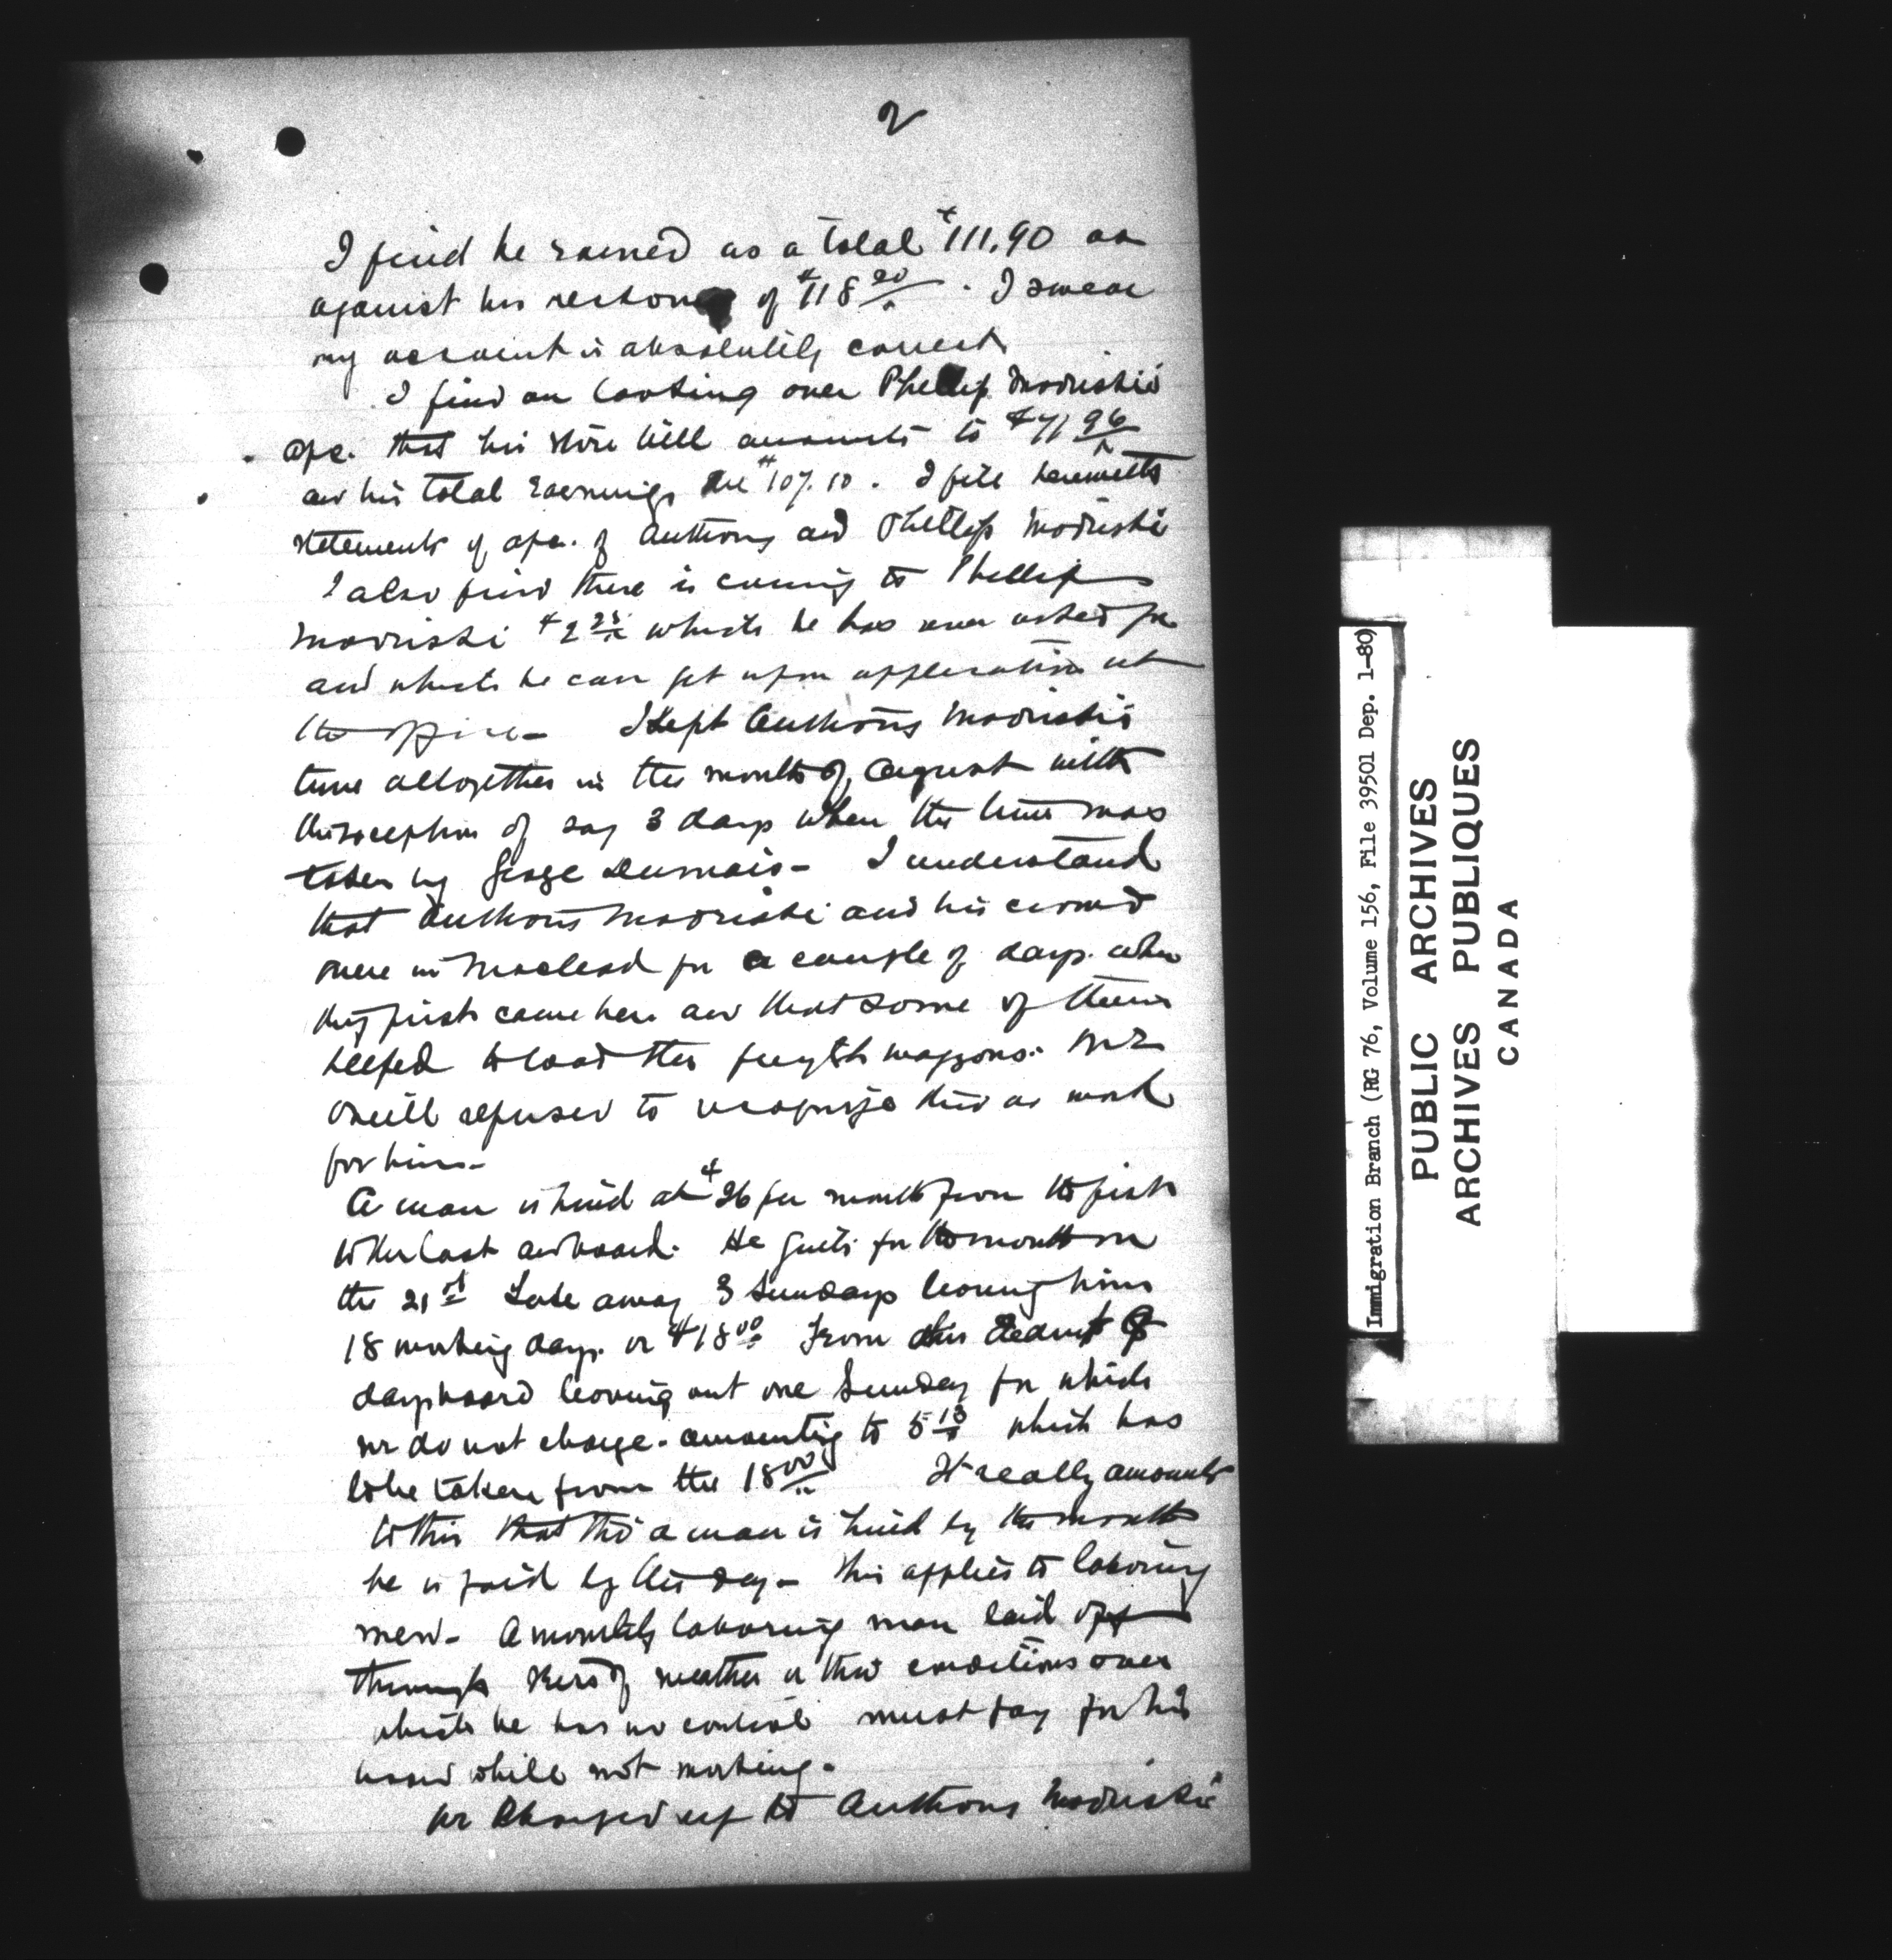 2
I find he earned as a total $111.90 as
against his reckoning of $118 20/x. I swear
my account is absolutely correct
I find on looking over Phillip Modriski's
a/c. that his store bill amounts to $71 96/x
and his total earnings are $107.10. I file herewith
statements of a/cs. of Anthony and Phillip Modriski
I also find there is coming to Phillip
Modriski $2 25/x which he has never asked for
and which he can get upon application at
the office - I kept Anthony Modriski's
time altogether in the month of August with
the exception of say 3 days when the time was
taken by George Dumais - I understand
that Anthony Modriski and his crowd
were in Macleod for a couple of days when
they first came here and that some of them
helped to load the freight waggons. Mr
Oneill refused to recognize this as work
for him -
A man is hired at $26 per month from the first
to the last and board. He quits for the month on
the 21st Take away 3 Sundays leaving him
18 working days or $18 00 From this deduct
days board leaving out one Sunday for which
we do not charge - amounting to 5 13/x which has
to be taken from the 18 00/x It really amounts
to this that tho' a man is hired by the month
he is paid by the day - This applies to laboring
men - A monthly laboring man laid off
through of weather or this conditions over
which he has no control must pay for his
board while not working -
We charged up to Anthony Modriski
Immigration Branch (RG 76, Volume 156, File 39501 Dep. 1-80)
PUBLIC ARCHIVES
ARCHIVES PUBLIQUES
CANADA